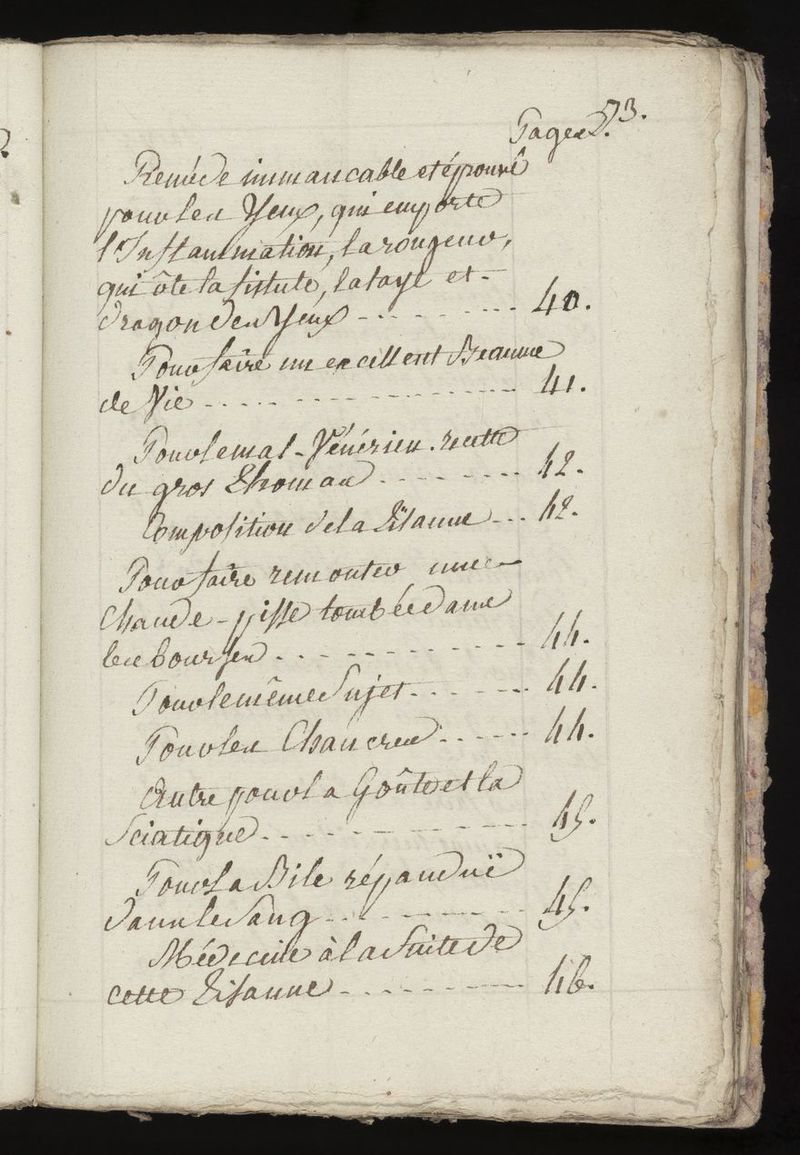 73.
Pages.
Reméde immancable et éprouvé
pour les Yeux, qui emporte
l'Inflammation, la rougeur,
qui ôte la fistule, la taye et
dragon des Yeux - - - - - - - - 40.
Pour faire un excellent Beaume
de Vie - - - - - - - - - - - - 41.
Pour le mal-Vénérien. recette
du gros Thomas - - - - - - - - 42.
Composition de la Tisanne - - - 42.
Pour faire remonter une
Chaude-pisse tombée dans
les bourses - - - - - - - - - - 44.
Pour le même Sujet - - - - - - 44.
Pour les Chancres - - - - - - 44.
Autre pour la Goûte et la
Sciatique - - - - - - - - - - - 45.
Pour la Bile répanduë
dans le Sang - - - - - - - - - 45.
Médecine à la Suite de
cette Tisanne - - - - - - - - - 46.